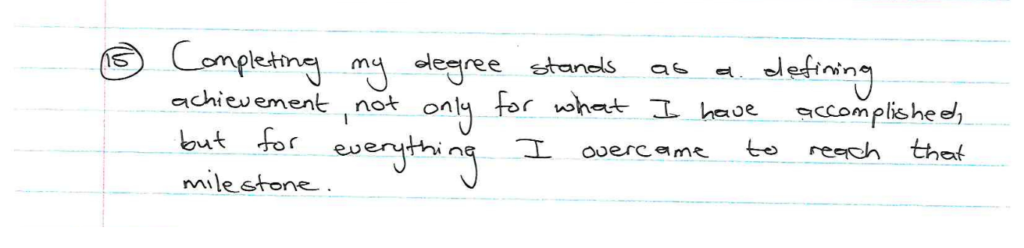 15 Completing my degree stands as a defining
achievement, not only for what I have accomplished,
but for everything I overcame to reach that
milestone.